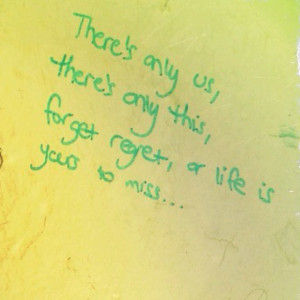 There's only us,
there's only this,
forget regret, or life is
yours to miss...